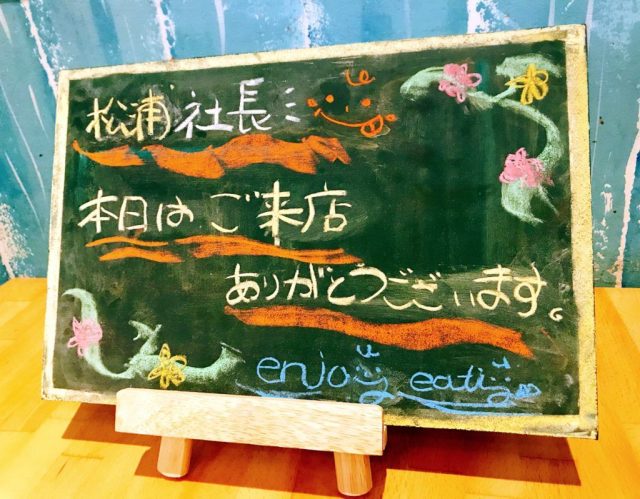 松浦 社長
本日は ご来店
ありがとうございます。
enjoy eating